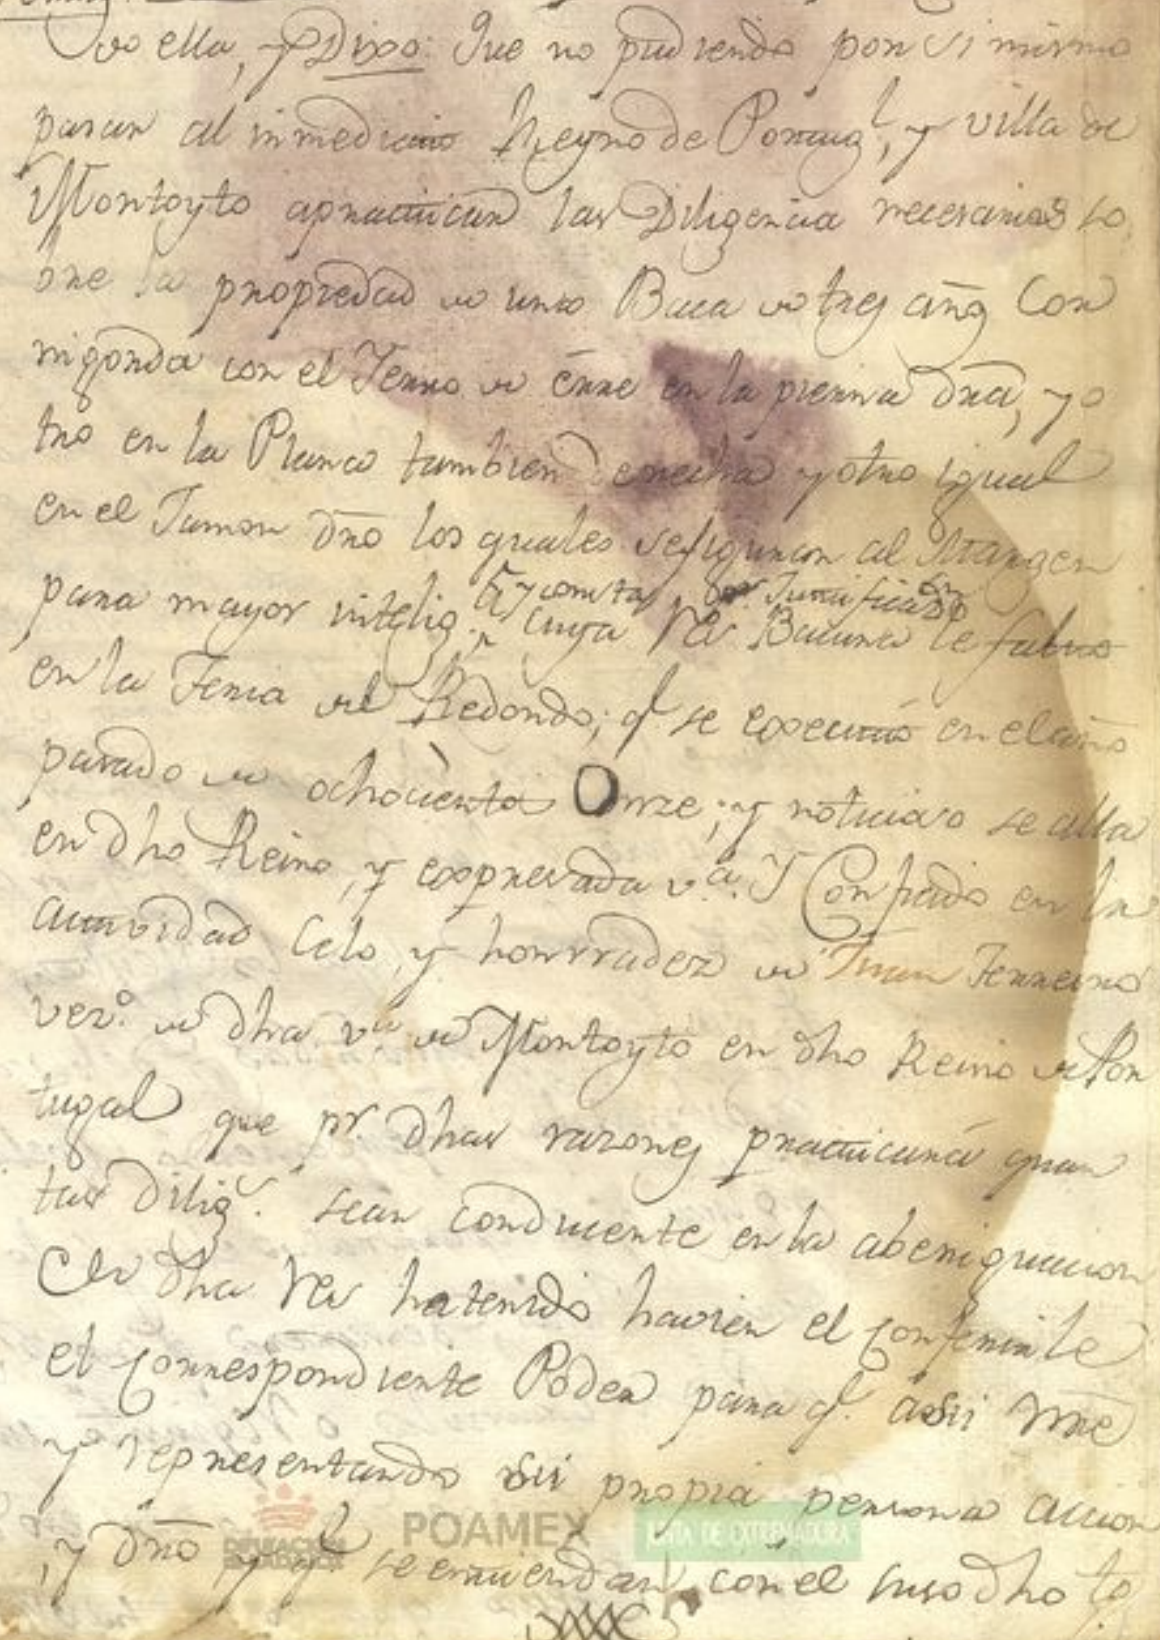 de ella, y Dixo: Que no pudiendo por si mismo
pasar al inmediato Reyno de Portug.l, y villa de
Montoyto apracticar las Diligencia necesarias so
bre la propiedad de una Baca de tres añs Con
rigorda con el Ferro de érre en la pierna dra, y o
tro en la Planca tambien derecha y otro igual
en el Jamon dro los quales sefiguran al Margen
para mayor intelig.a
y consta por Justificaon
cuya Res Bacuna le falto
en la Feria del Redondo; q.e se executó en el año
pasado de ochocientos Onze; y noticioso se alla
en dho Reino, y expresada v.a Y Confiado en la
actividad Celo, y honrradez de Juan Ferreira
vez.o de dha v.a de Montoyto en dho Reino de Por
tugal que pr. dhas razones practicará quan
tas dilig.s sean conducente en la aberiguacion
de dha Res ha tenido havien el conferirle
el correspondiente Poder para q.e asu nre
y representando su propia persona accion
y dro y q.e se entiendan con el suso dho to
DIPUTACIÓN DE BADAJOZ
POAMEX
JUNTA DE EXTREMADURA